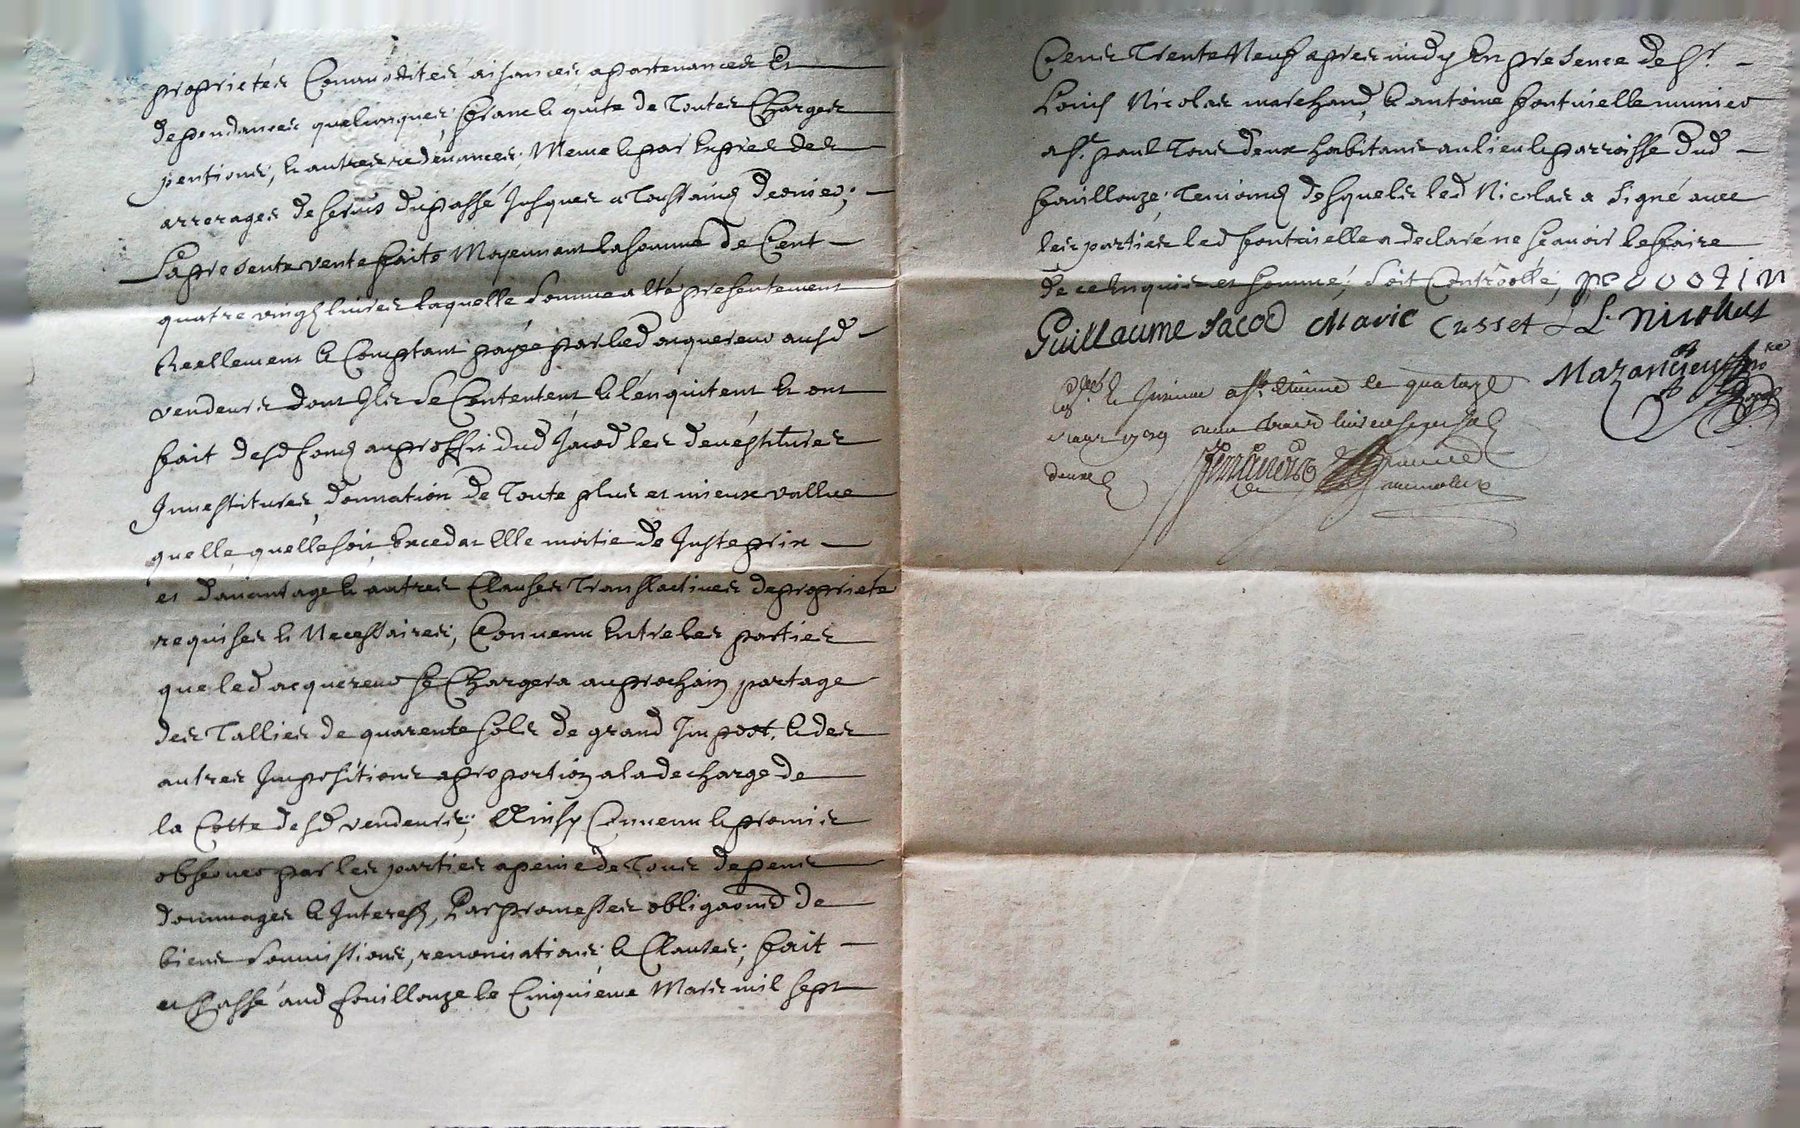 proprietés Commodités aisances apartenances Et
dependances quelconques, franc & quite de Toutes Charges
pentions, & autres redevances, Meme & par Exprés des
arrerages de servis du passé Jusques a Toussaincts dernier,
La presente vente faitte Moyennant la somme de Cent
quatre vingt livres laquelle somme a Eté presentement
Reellement & Comptant payée par led acquereur ausd
vendeurs dont Ils se Contentent & l'en quitent Et ont
fait desd fonds au proffit dud Jacod les devestitures
Investitures, donnation de Toute plus et mieux vallue
quelle quelle soit Exceda elle moitie de Juste prix
et d'avantage & autres Clauses Translatives de proprieté
requises & Necessaires, Convenu Entre les parties
que led acquereur se Chargera au prochain partage
des Tallies de quarente sols de grand Impost, & des
autres Impositions a proportion a la decharge de
la Cotte desd vendeurs, Ainsy Convenu & promis
observer par les parties a peine de Tous depens
dommages & Interests, Par promesses obligaons de
biens soumissions, renonciations & Clauses, fait
et Passé aud fouillouze le Cinquieme Mars mil sept
Cens Trente Neuf apres midy En presence de Sr
Louis Nicolas marchand, & antoine fontvielle munier
a St paul Tous deux habitans au lieu & parroisse dud
fouillouze, Temoins desquels led Nicolas a signé avec
les parties led fontvielle a declaré ne scavoir le faire
de ce Enquis et sommé, soit Controollé, peurotin
Guillaume Jacod Marie Cusset L. nicolas
Mazancieux nore
Con.lé & Insinué a St. Etienne le quatorze
mars 1739 livres
deux